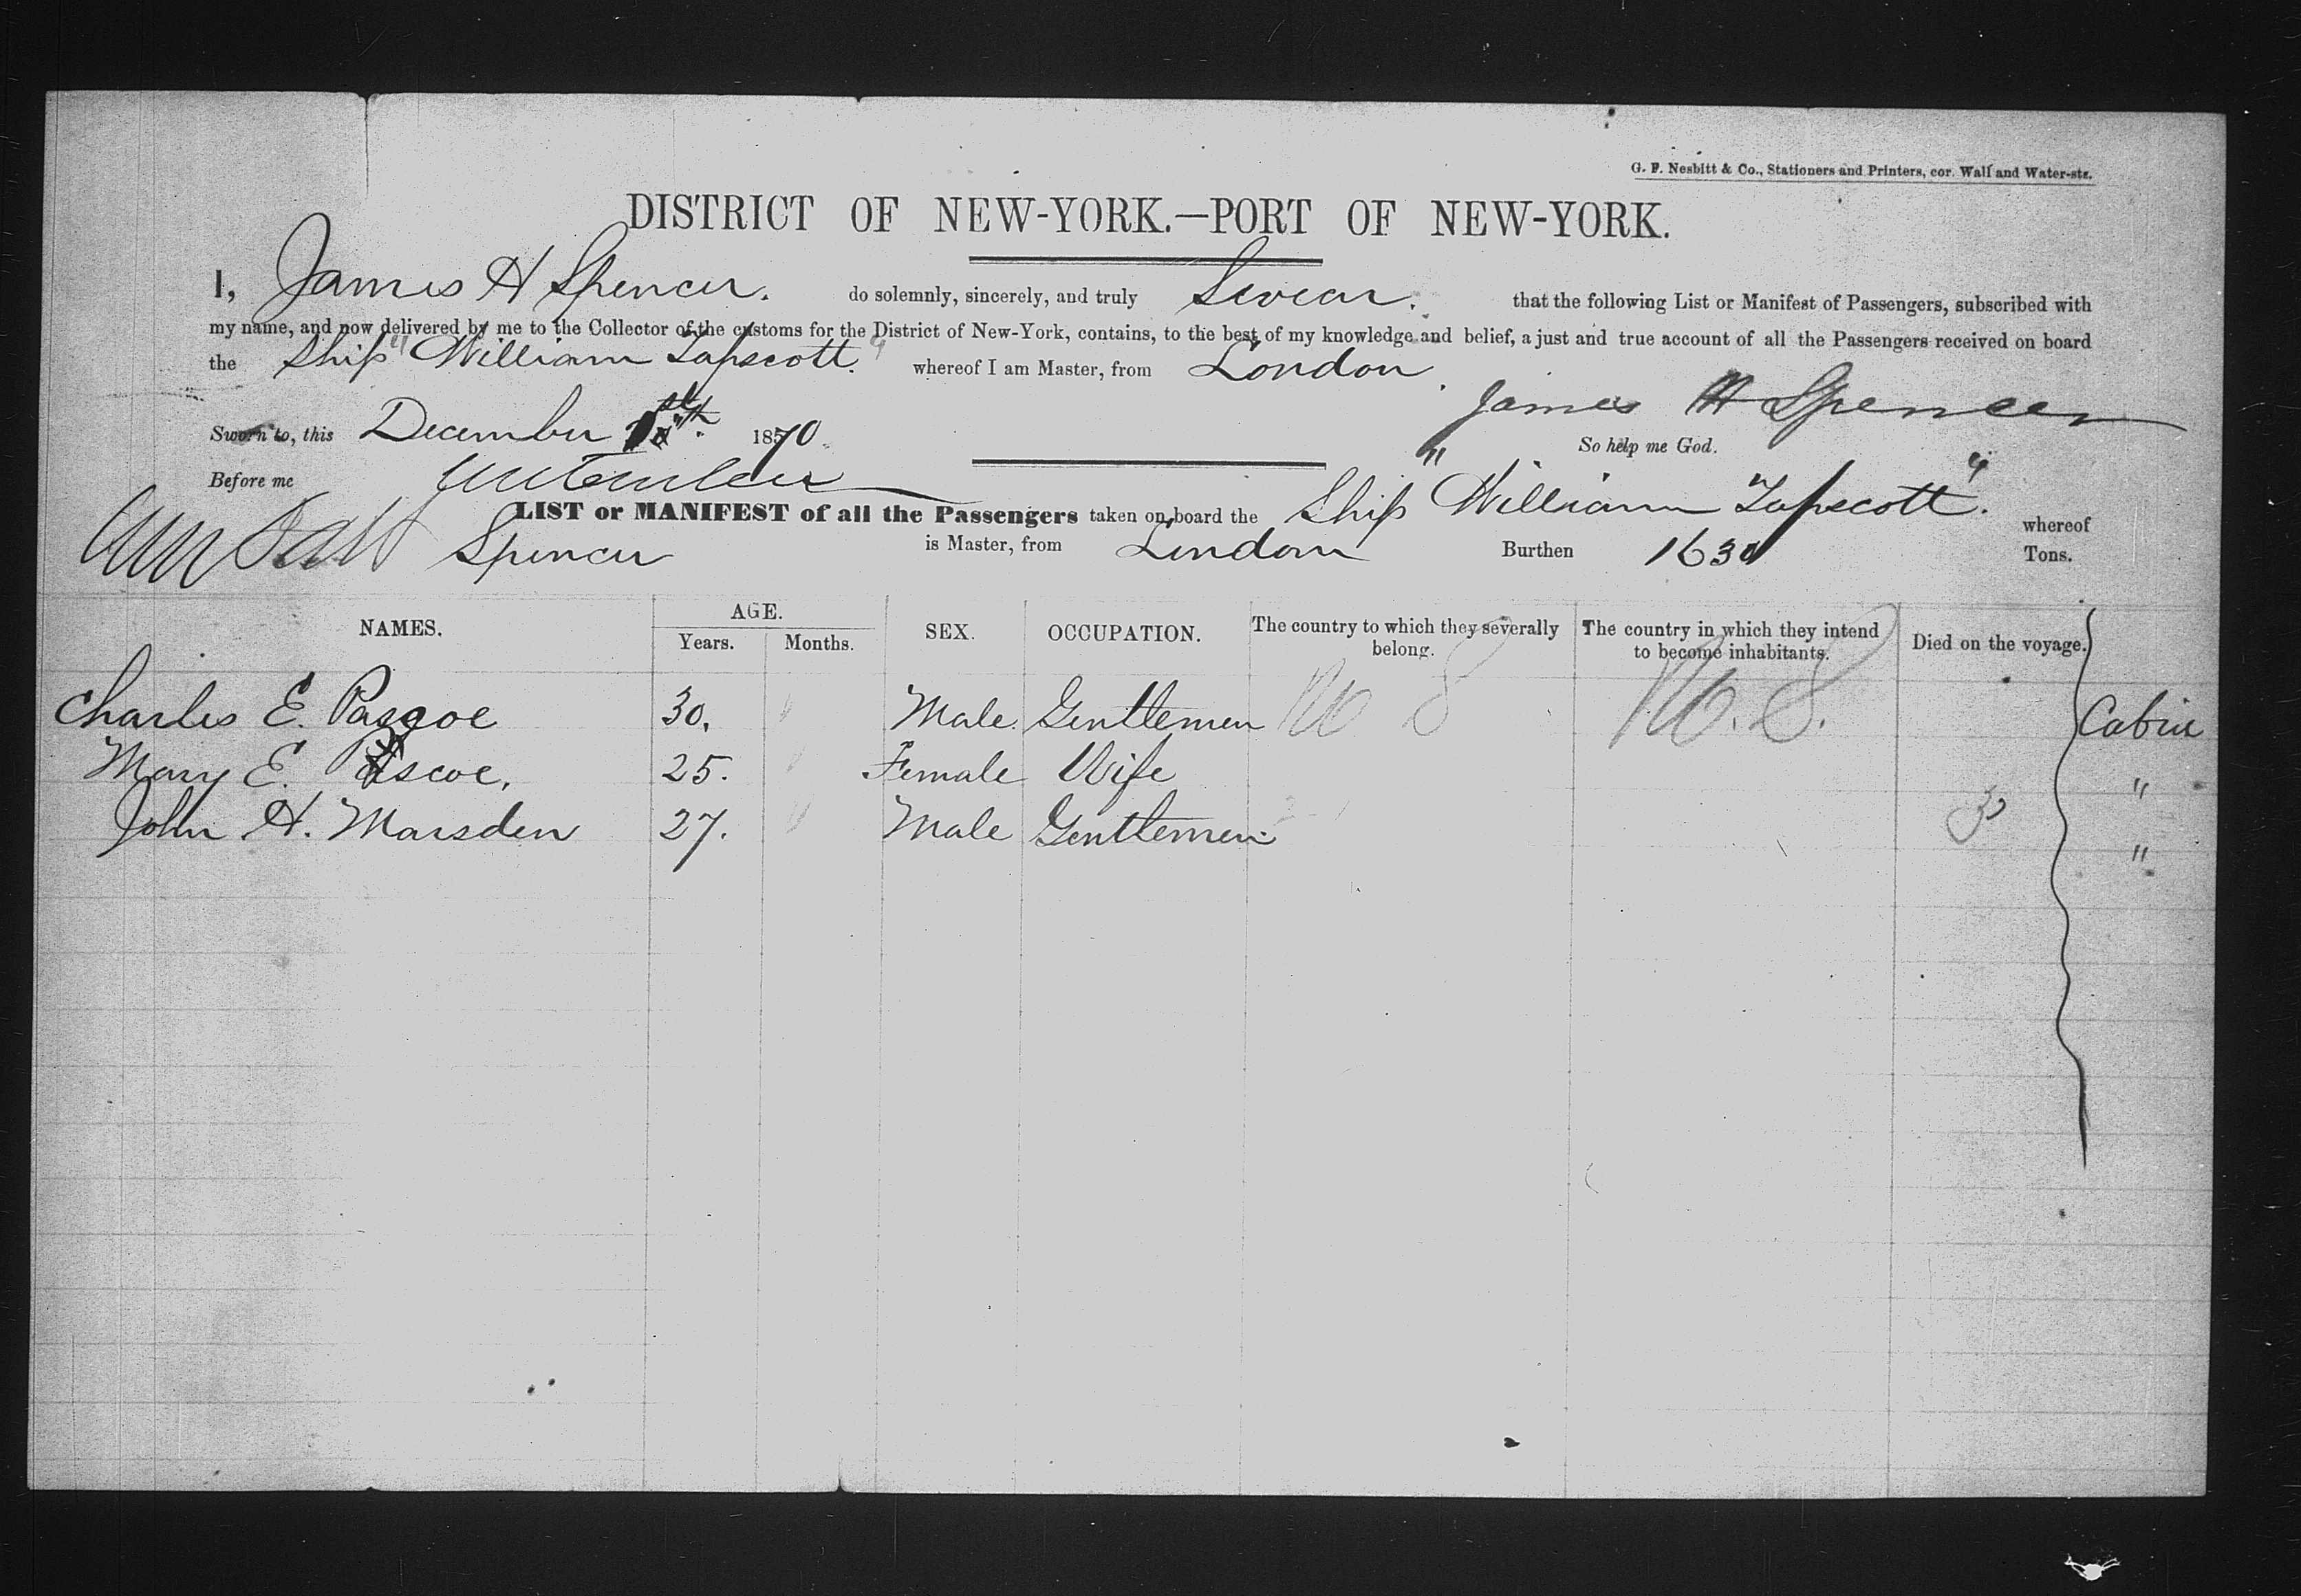 G. F. Nesbitt & Co., Stationers and Printers, cor. Wall and Water-sts.
DISTRICT OF NEW-YORK.—PORT OF NEW-YORK.
I, James H Spencer. do solemnly, sincerely, and truly Swear. that the following List or Manifest of Passengers, subscribed with
my name, and now delivered by me to the Collector of the customs for the District of New-York, contains, to the best of my knowledge and belief, a just and true account of all the Passengers received on board
the Ship "William Tapscott." whereof I am Master, from London.
James H Spencer
Sworn to, this December 1870.
So help me God.
Before me
LIST or MANIFEST of all the Passengers taken on board the Ship "William Tapscott". whereof
Spencer is Master, from London Burthen 1630 Tons.
NAMES. AGE. Years. Months. SEX. OCCUPATION. The country to which they severally belong. The country in which they intend to become inhabitants. Died on the voyage.
Charles E. Pascoe 30. Male. Gentlemen U S U. S. Cabin
Mary E. Pascoe, 25. Female Wife "
John H. Marsden 27. Male Gentlemen 3 "